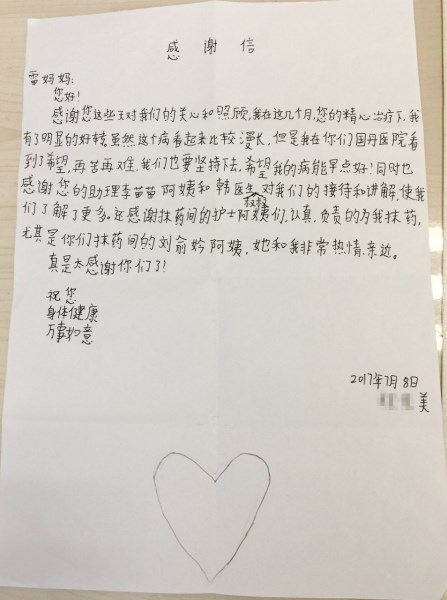 感谢信
雷妈妈:
您好!
感谢您这些天对我们的关心和照顾,我在这几个月,您的精心治疗下,我
有了明显的好转,虽然这个病看起来比较漫长,但是我在你们国丹医院看
到了希望,再苦再难,我们也要坚持下去,希望我的病能早点好!同时也
感谢您的助理李苗苗阿姨和韩医生叔叔对我们的接待和讲解,使我
们了解了更多。还感谢抹药间的护士阿姨们,认真,负责的为我抹药,
尤其是你们抹药间的刘俞妗阿姨,她和我非常热情,亲近。
真是太感谢你们了!
祝您
身体健康
万事如意
2017年7月8日
美